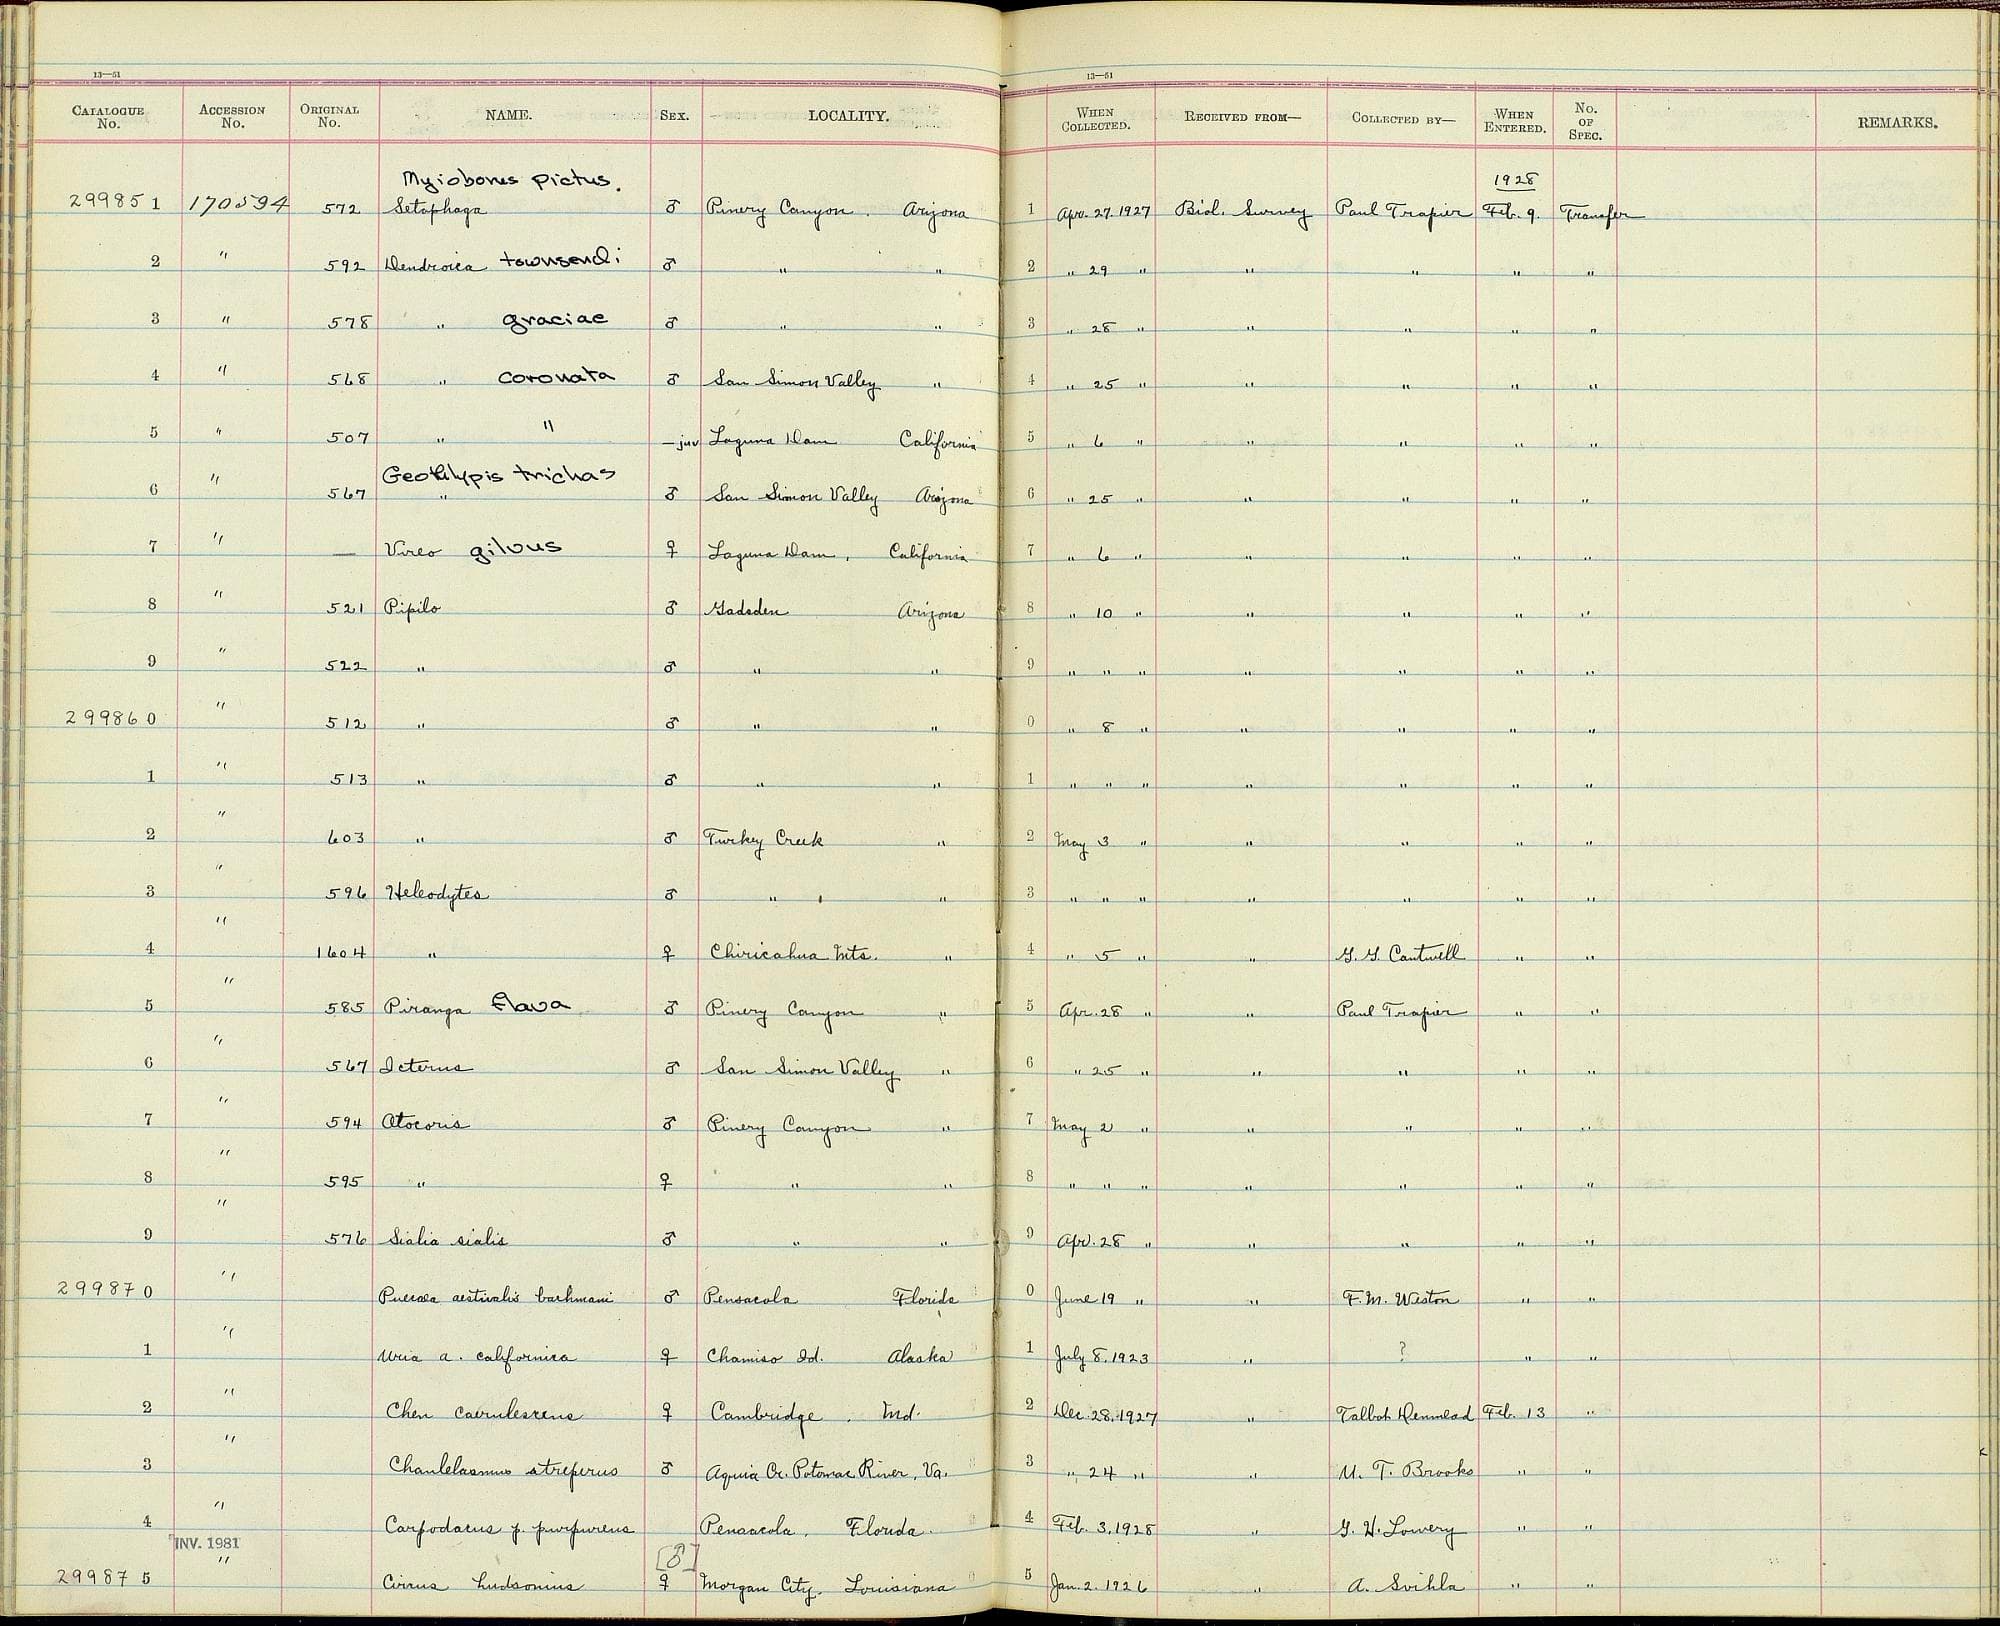 13—51 13—51
CATALOGUE No. ACCESSION No. ORIGINAL No. NAME. SEX. LOCALITY. WHEN COLLECTED. RECEIVED FROM— COLLECTED BY— WHEN ENTERED. No. OF SPEC. REMARKS.
Myioborus pictus. 1928
29985 1 170594 572 Setophaga ♂ Pinery Canyon. Arizona 1 Apr. 27. 1927 Biol. Survey Paul Trapier Feb. 9. Transfer
2 " 592 Dendroica townsendi ♂ " " 2 " 29 " " " " "
3 " 578 " graciae ♂ " " 3 " 28 " " " " "
4 " 568 " coronata ♂ San Simon Valley " 4 " 25 " " " " "
5 " 507 " " — juv Laguna Dam California 5 " 6 " " " " "
Geothlypis trichas
6 " 567 " ♂ San Simon Valley Arizona 6 " 25 " " " " "
7 " — Vireo gilvus ♀ Laguna Dam, California 7 " 6 " " " " "
8 " 521 Pipilo ♂ Gadsden Arizona 8 " 10 " " " " "
9 " 522 " ♂ " " 9 " " " " " " "
29986 0 " 512 " ♂ " " 0 " 8 " " " " "
1 " 513 " ♂ " " 1 " " " " " " "
2 " 603 " ♂ Turkey Creek " 2 May 3 " " " " "
3 " 596 Heleodytes ♂ " " 3 " " " " " " "
4 " 1604 " ♀ Chiricahua Mts. " 4 " 5 " " G. G. Cantwell " "
5 " 585 Piranga flava ♂ Pinery Canyon " 5 Apr. 28 " " Paul Trapier " "
6 " 567 Icterus ♂ San Simon Valley " 6 " 25 " " " " "
7 " 594 Otocoris ♂ Pinery Canyon " 7 May 2 " " " " "
8 " 595 " ♀ " " 8 " " " " " " "
9 " 576 Sialia sialis ♂ " " 9 Apr. 28 " " " " "
29987 0 " Pucaea aestivalis bachmani ♂ Pensacola Florida 0 June 19 " " F. M. Weston " "
1 " Uria a. californica ♀ Chamiso Id. Alaska 1 July 8. 1923 " ? " "
2 " Chen caerulescens ♀ Cambridge. Md. 2 Dec. 28. 1927 " Talbot Denmead Feb. 13 "
3 " Chaulelasmus streperus ♂ Aquia Cr. Potomac River, Va. 3 " 24 " " U. T. Brooks " "
4 " Carpodacus p. purpureus Pensacola. Florida. 4 Feb. 3. 1928 " G. H. Lowery " "
INV. 1981 [♂]
29987 5 " Circus hudsonius ♀ Morgan City. Louisiana 5 Jan. 2. 1926 " A. Svihla " "